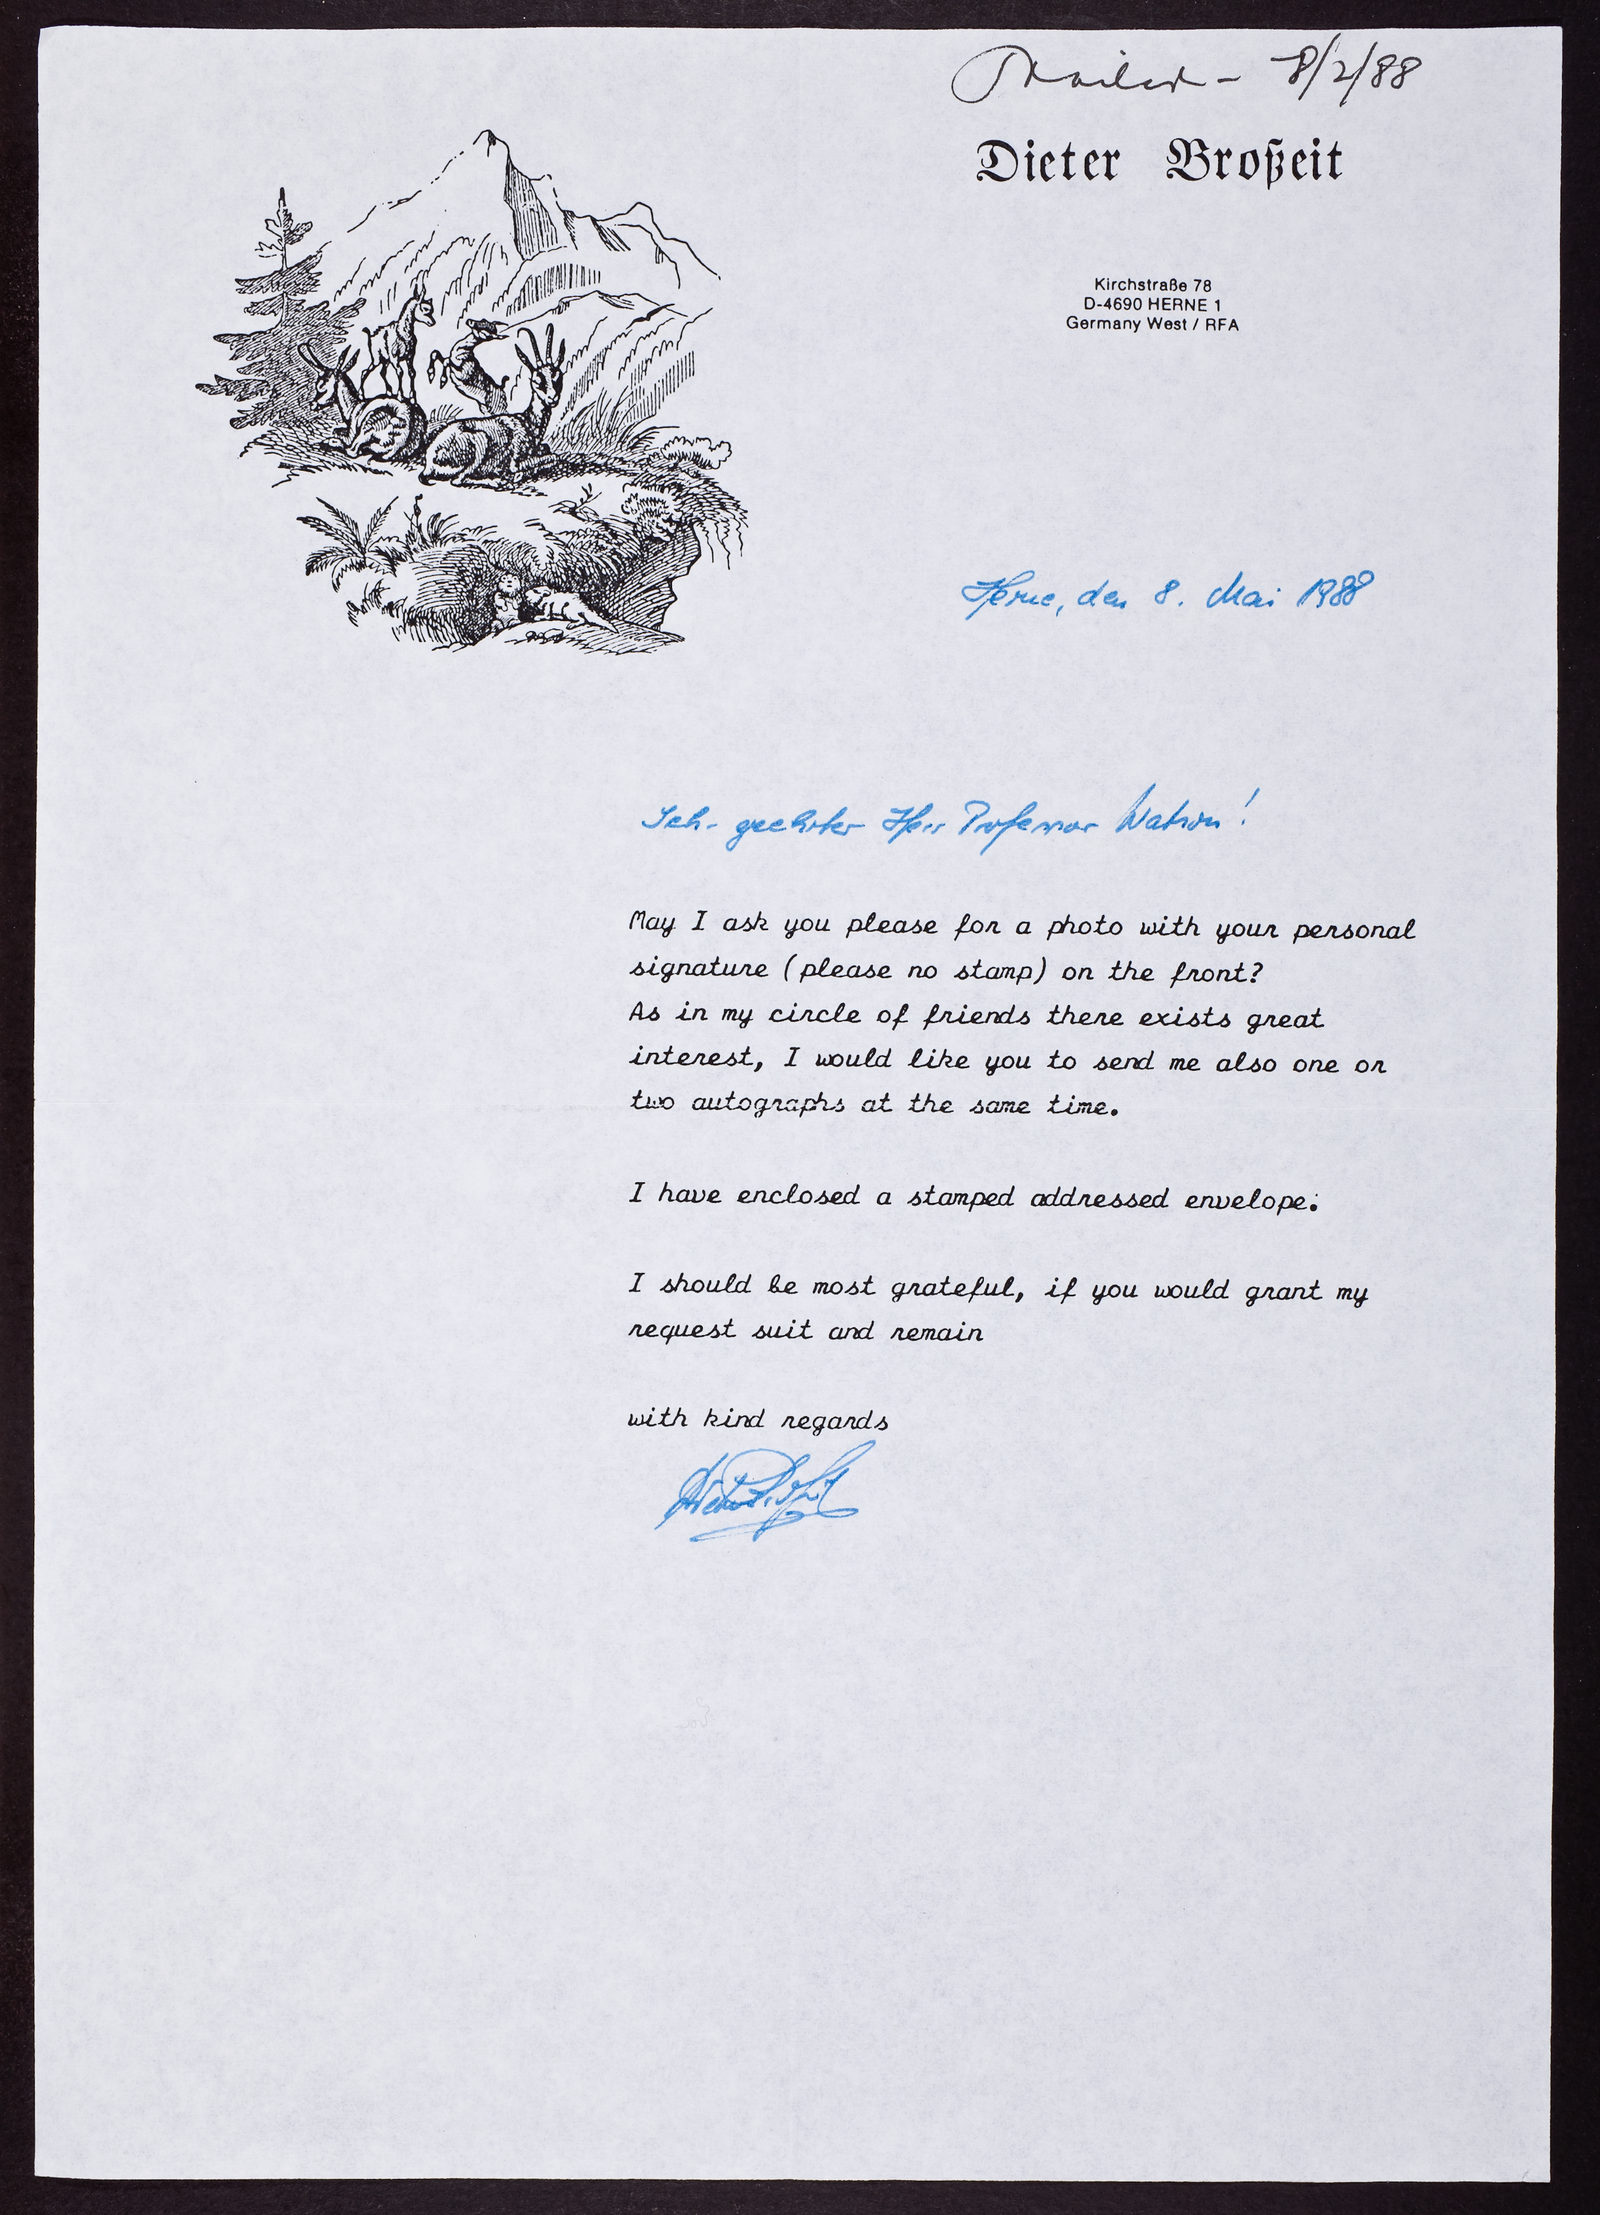 Mailed - 8/2/88
Dieter Broßeit
Kirchstraße 78
D-4690 HERNE 1
Germany West / RFA
Herne, den 8. Mai 1988
Sehr geehrter Herr Professor Watson!
May I ask you please for a photo with your personal
signature (please no stamp) on the front?
As in my circle of friends there exists great
interest, I would like you to send me also one or
two autographs at the same time.
I have enclosed a stamped addressed envelope.
I should be most grateful, if you would grant my
request suit and remain
with kind regards
Dieter Broßeit